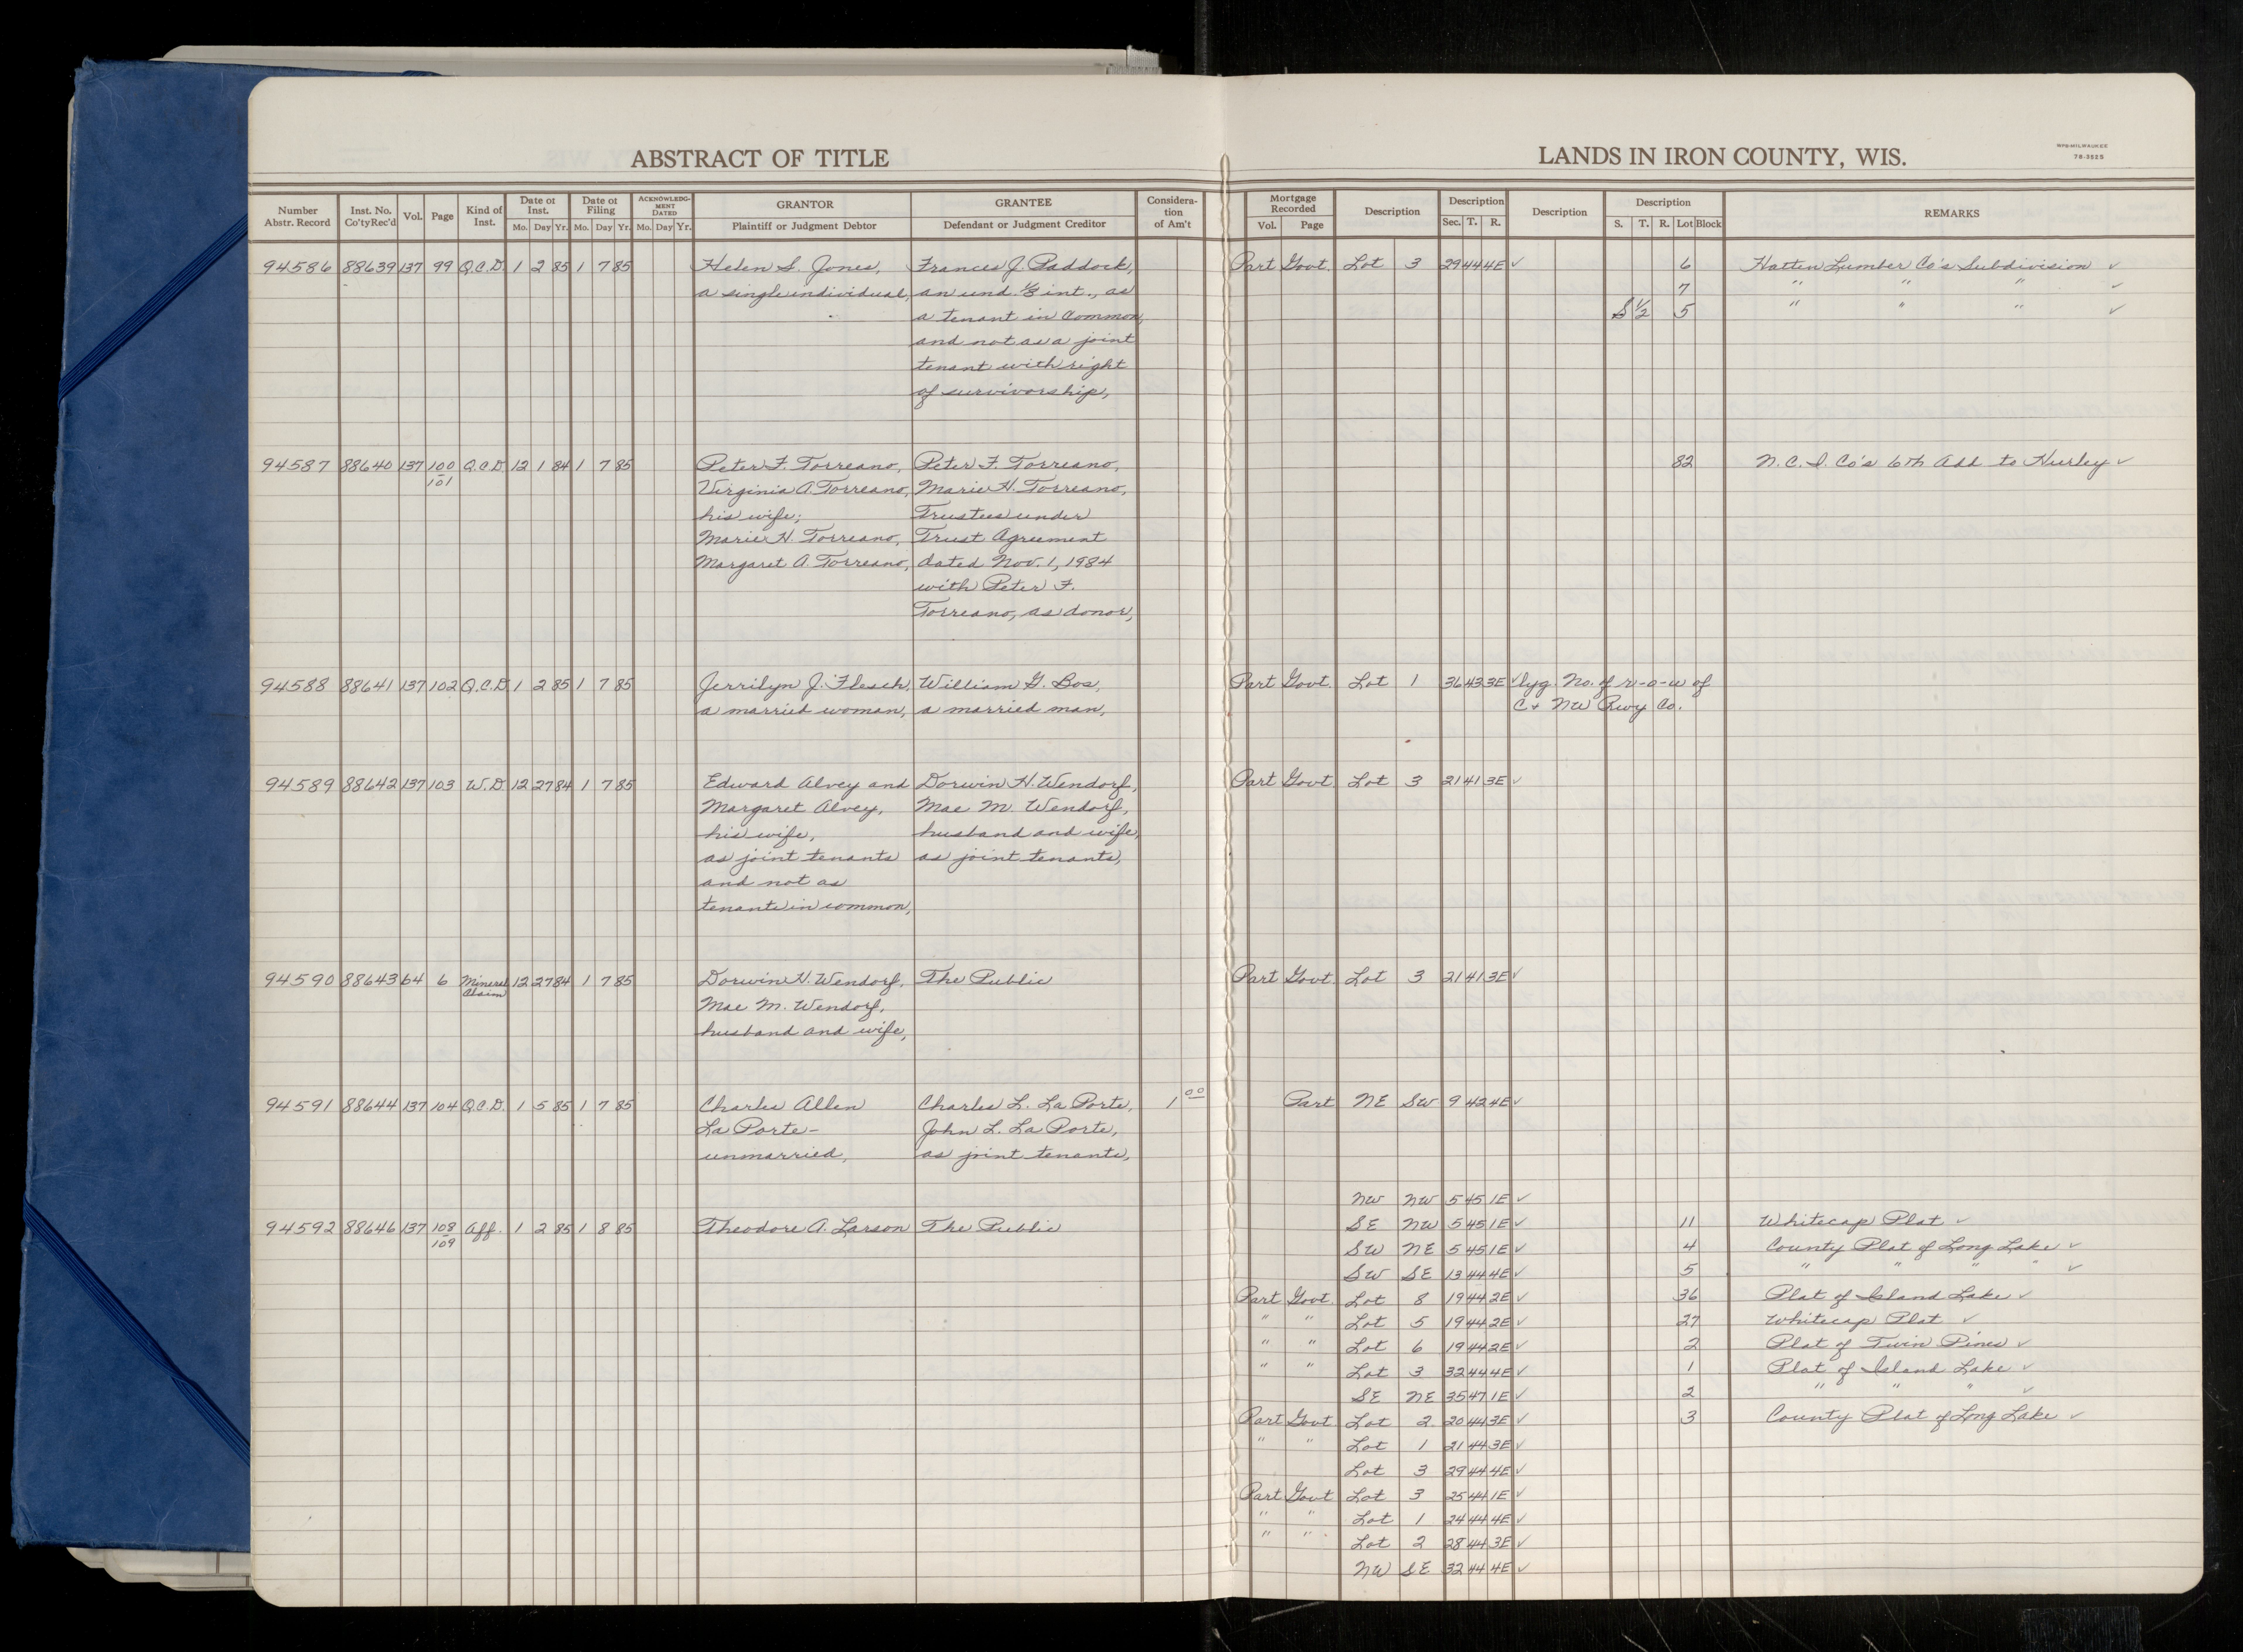 ABSTRACT OF TITLE
LANDS IN IRON COUNTY, WIS.
WPB-MILWAUKEE
78-3525
Number Abstr. Record | Inst. No. Co'ty Rec'd | Vol. | Page | Kind of Inst. | Date of Inst. Mo. Day Yr. | Date of Filing Mo. Day Yr. | ACKNOWLEDGMENT DATED Mo. Day Yr. | GRANTOR Plaintiff or Judgment Debtor | GRANTEE Defendant or Judgment Creditor | Consideration of Am't | Mortgage Recorded Vol. Page | Description | Description Sec. T. R. | Description | Description S. T. R. Lot Block | REMARKS
94586 88639 137 99 Q.C.D. 1 2 85 1 7 85 Helen S. Jones, Frances J. Paddock, Part Govt. Lot 3 29 44 4E ✓ 6 Hatten Lumber Co's Subdivision ✓
a single individual, an und. 1/3 int., as 7 " " " ✓
a tenant in common, S 1/2 5 " " " ✓
and not as a joint
tenant with right
of survivorship,
94587 88640 137 100 Q.C.D 12 1 84 1 7 85 Peter F. Torreano, Peter F. Torreano, 82 N.C.I. Co's 6th Add to Hurley ✓
101 Virginia A. Torreano, Marie H. Torreano,
his wife; Trustees under
Marie H. Torreano, Trust Agreement
Margaret A. Torreano, dated Nov. 1, 1984
with Peter F.
Torreano, as donor,
94588 88641 137 102 Q.C.D. 1 2 85 1 7 85 Jerrilyn J. Flesch, William G. Bos, Part Govt. Lot 1 36 43 3E ✓ lyg. No. of r-o-w of
a married woman, a married man, C + NW Rwy Co.
94589 88642 137 103 W.D. 12 27 84 1 7 85 Edward Alvey and Dorwin H. Wendorf, Part Govt. Lot 3 21 41 3E ✓
Margaret Alvey, Mae M. Wendorf,
his wife, husband and wife,
as joint tenants as joint tenants,
and not as
tenants in common,
94590 88643 64 6 Mineral Claim 12 27 84 1 7 85 Dorwin H. Wendorf, The Public Part Govt. Lot 3 21 41 3E ✓
Mae M. Wendorf,
husband and wife,
94591 88644 137 104 Q.C.D. 1 5 85 1 7 85 Charles Allen Charles L. La Porte, 1 00 Part NE SW 9 42 4E ✓
La Porte- John L. La Porte,
unmarried, as joint tenants,
NW NW 5 45 1E ✓
94592 88646 137 108 Aff. 1 2 85 1 8 85 Theodore A. Larson The Public SE NW 5 45 1E ✓ 11 Whitecap Plat ✓
109 SW NE 5 45 1E ✓ 4 County Plat of Long Lake ✓
SW SE 13 44 4E ✓ 5 " " " " ✓
Part Govt. Lot 8 19 44 2E ✓ 36 Plat of Island Lake ✓
" " Lot 5 19 44 2E ✓ 27 Whitecap Plat ✓
" " Lot 6 19 44 2E ✓ 2 Plat of Twin Pines ✓
" " Lot 3 32 44 4E ✓ 1 Plat of Island Lake ✓
SE NE 35 47 1E ✓ 2 " " " ✓
Part Govt Lot 2 20 44 3E ✓ 3 County Plat of Long Lake ✓
" " Lot 1 21 44 3E ✓
Lot 3 29 44 4E ✓
Part Govt Lot 3 25 44 1E ✓
" " Lot 1 24 44 4E ✓
" " Lot 2 28 44 3E ✓
NW SE 32 44 4E ✓